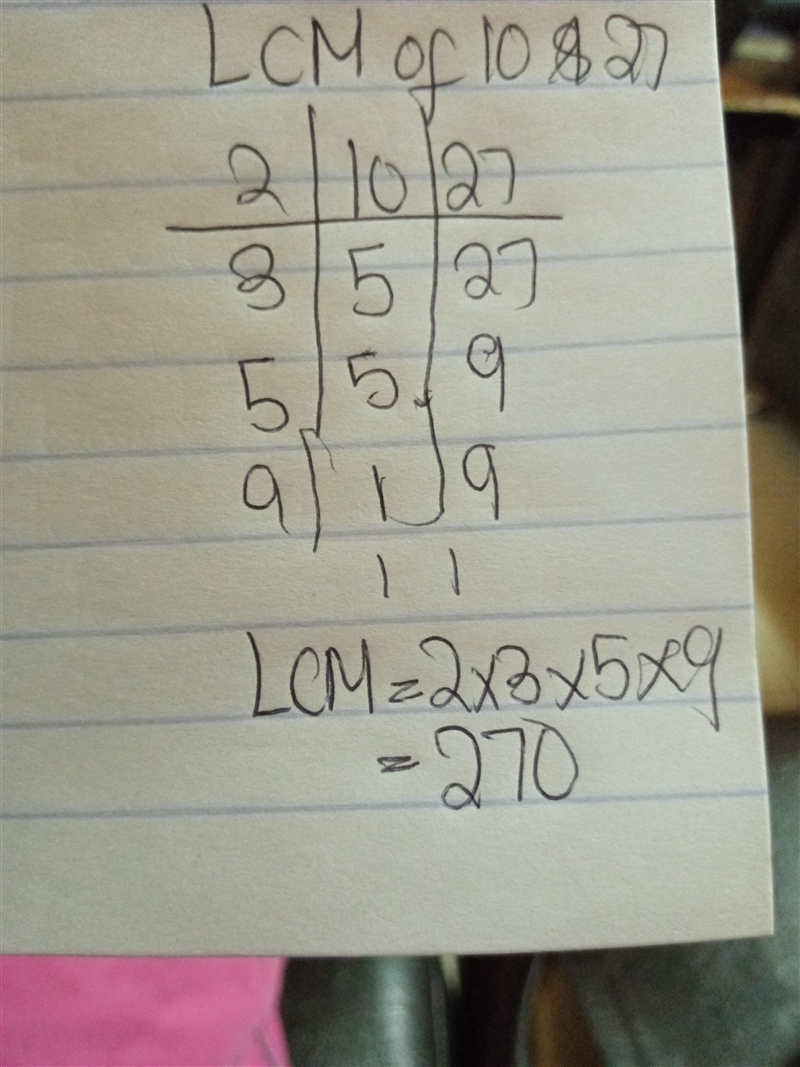 LCM of 10 & 27
2 10 27
3 5 27
5 5 9
9 1 9
1 1
LCM = 2x3x5x9
= 270